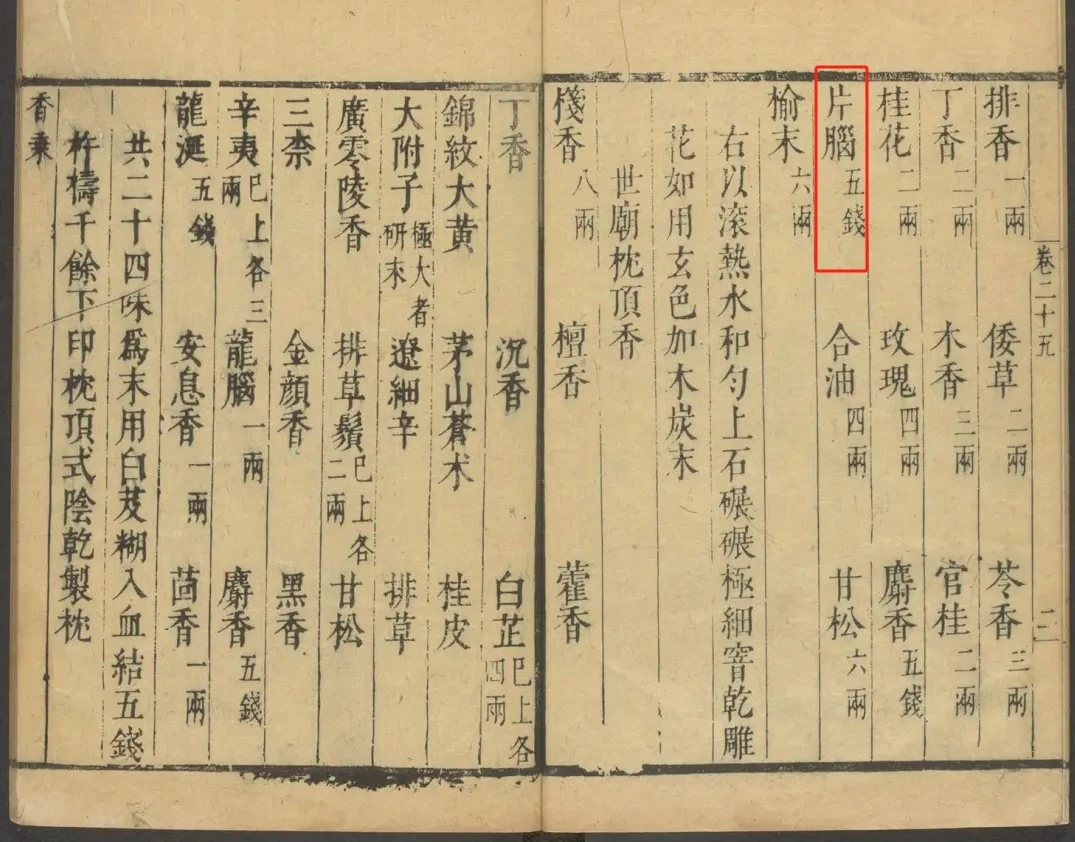 卷二十五
二
排香一兩 倭草二兩 苓香三兩
丁香二兩 木香三兩 官桂二兩
桂花二兩 玫瑰四兩 麝香五錢
片腦五錢 合油四兩 甘松六兩
榆末六兩
右以滚熱水和勻上石碾碾極細窨乾雕
花如用玄色加木炭末
世廟枕頂香
棧香八兩 檀香 藿香
丁香 沉香 白芷已上各四兩
錦紋大黃 茅山蒼术 桂皮
大附子極大者研末 遼細辛 排草
廣零陵香 排草鬚已上各二兩 甘松
三柰 金顏香 黑香
辛夷已上各三兩 龍腦一兩 麝香五錢
龍涎五錢 安息香一兩 茴香一兩
共二十四味爲末用白芨糊入血結五錢
杵擣千餘下印枕頂式陰乾製枕
香乗